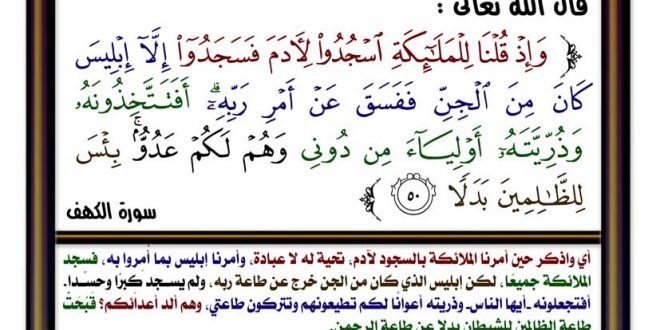 قال الله تعالى :
﴿ وَإِذْ قُلْنَا لِلْمَلَٰٓئِكَةِ ٱسْجُدُوا۟ لِءَادَمَ فَسَجَدُوٓا۟ إِلَّآ إِبْلِيسَ
كَانَ مِنَ ٱلْجِنِّ فَفَسَقَ عَنْ أَمْرِ رَبِّهِۦٓ ۗ أَفَتَتَّخِذُونَهُۥ
وَذُرِّيَّتَهُۥٓ أَوْلِيَآءَ مِن دُونِى وَهُمْ لَكُمْ عَدُوٌّۢ ۚ بِئْسَ
لِلظَّٰلِمِينَ بَدَلًا ٥٠ ﴾
سورة الكهف
أي واذكر حين أمرنا الملائكة بالسجود لآدم، تحية له لا عبادة، وأمرنا إبليس بما أُمِروا به، فسجد
الملائكة جميعًا، لكن إبليس الذي كان من الجن خرج عن طاعة ربه، ولم يسجد كِبرًا وحسدًا.
أفتجعلونه -أيها الناس- وذريته أعوانًا لكم تطيعونهم وتتركون طاعتي، وهم ألد أعدائكم؟ قَبُحَتْ
طاعة الظالمين للشيطان بدلا عن طاعة الرحمن.